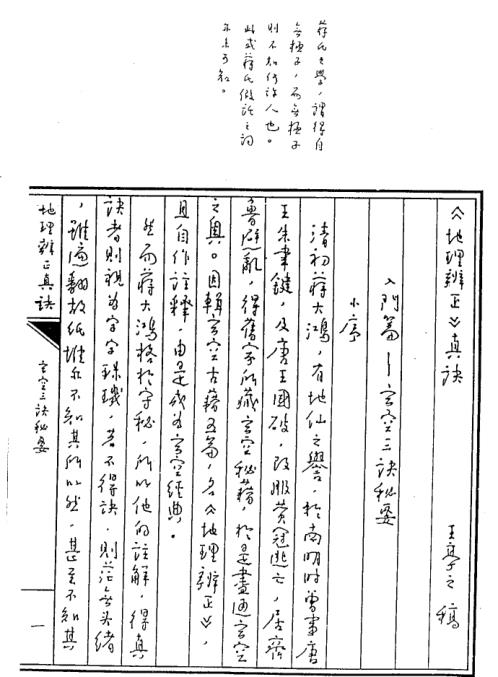 蔣氏之學，謂得自
無極子，而無極子
則不知何許人也。
此或蔣氏假託之詞
亦未可知。
《地理辨正》真訣
王亭之稿
入門篇—玄空三訣秘要
小序
清初蔣大鴻，有地仙之譽，於南明時曾事唐
王朱聿鍵，及唐王國破，改服黃冠逃亡，居齊
魯避亂，得舊家所藏玄空秘籍，於是盡通玄空
之奧。因輯玄空古籍五篇，名《地理辨正》，
且自作註釋，由是成為玄空經典。
然而蔣大鴻格於守秘，所以他的註解，得真
訣者則視為字字珠璣，若不得訣，則茫無頭緒
，雖遍翻故紙堆亦不知其所以然，甚至不知其
地理辨正真訣
玄空三訣秘要
一